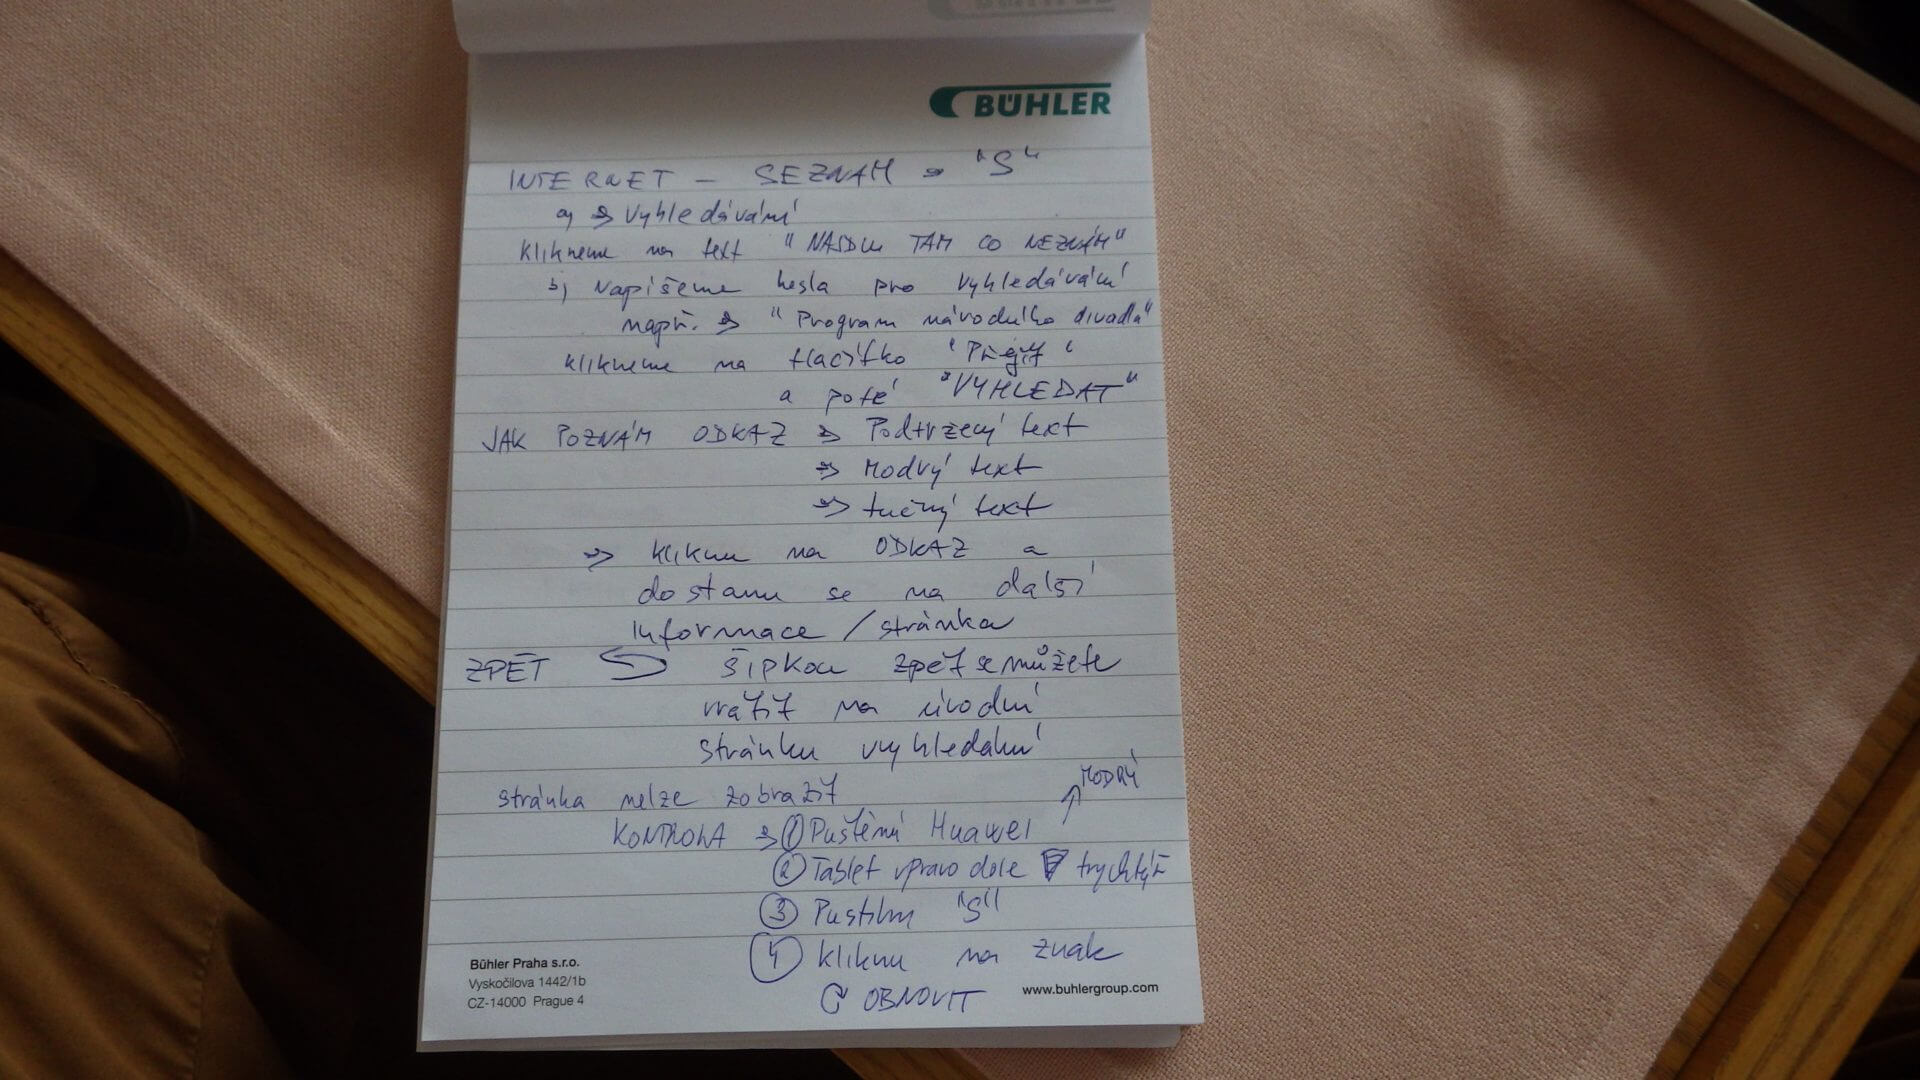 BÜHLER
INTERNET - SEZNAM ⇒ "S"
a) ⇒ Vyhledávání
Klikneme na text "NAJDU TAM CO NEZNÁM"
b) Napíšeme hesla pro vyhledávání
např. ⇒ "Program národního divadla"
klikneme na tlačítko "Přejít"
a poté "VYHLEDAT"
JAK POZNÁM ODKAZ ⇒ Podtržený text
⇒ Modrý text
⇒ tučný text
⇒ kliknu na ODKAZ a
dostanu se na další
informace / stránka
ZPĚT šipkou zpět se můžete
vrátit na úvodní
stránku vyhledání
stránka nelze zobrazit
MODRÝ
KONTROLA ⇒ ① Puštěný Huawei ↑
② Tablet vpravo dole trychtýř
③ Pustím "S"
④ kliknu na znak
↻ OBNOVIT
Bühler Praha s.r.o.
Vyskočilova 1442/1b
CZ-14000 Prague 4
www.buhlergroup.com